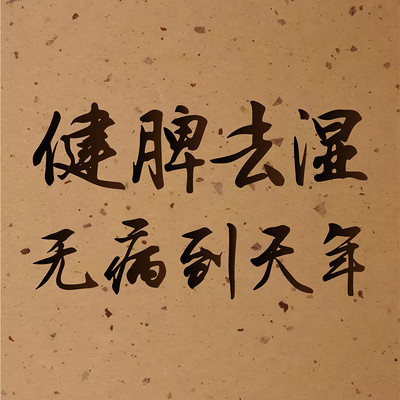 健脾去湿
无病到天年